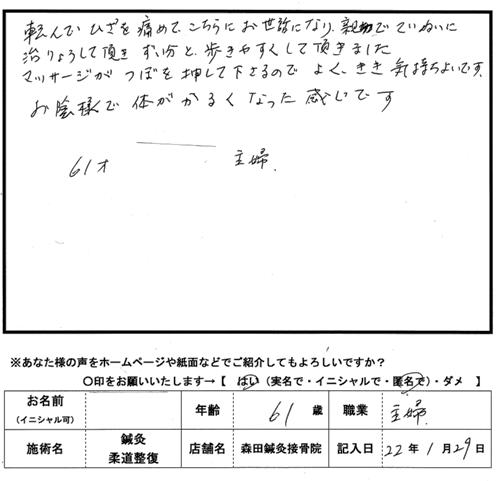 転んでひざを痛めて、こちらにお世話になり、親切でていねいに
治りょうして頂き ずい分と 歩きやすくして頂きました
マッサージが つぼを押して下さるので よく、きき 気持ちよいです。
お陰様で 体がかるくなった感じです
61才 主婦.
※あなた様の声をホームページや紙面などでご紹介してもよろしいですか？
〇印をお願いいたします→【 はい（実名で・イニシャルで・匿名で）・ダメ 】
お名前 （イニシャル可） 年齢 61 歳 職業 主婦.
施術名 鍼灸 柔道整復 店舗名 森田鍼灸接骨院 記入日 22年 1月 29日